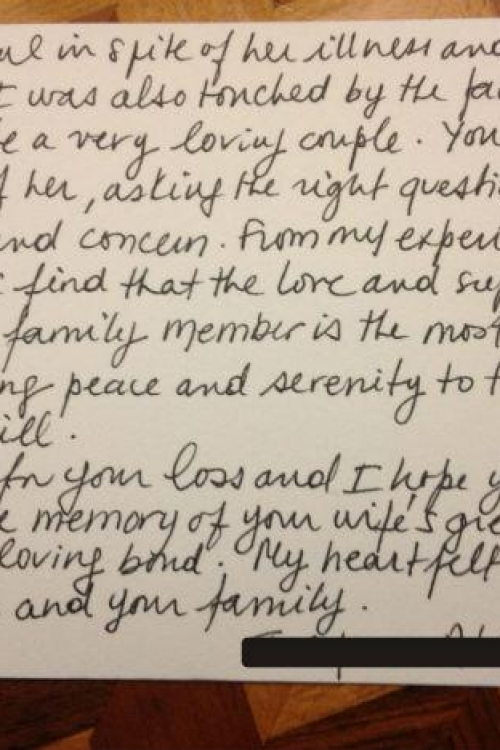 in spite of her illness and
I was also touched by the
a very loving couple. You
her, asking the right
and concern. From my
find that the love and
family member is the most
peace and serenity to
ill.
for your loss and I hope
memory of your wife's
loving bond. My heartfelt
and your family.